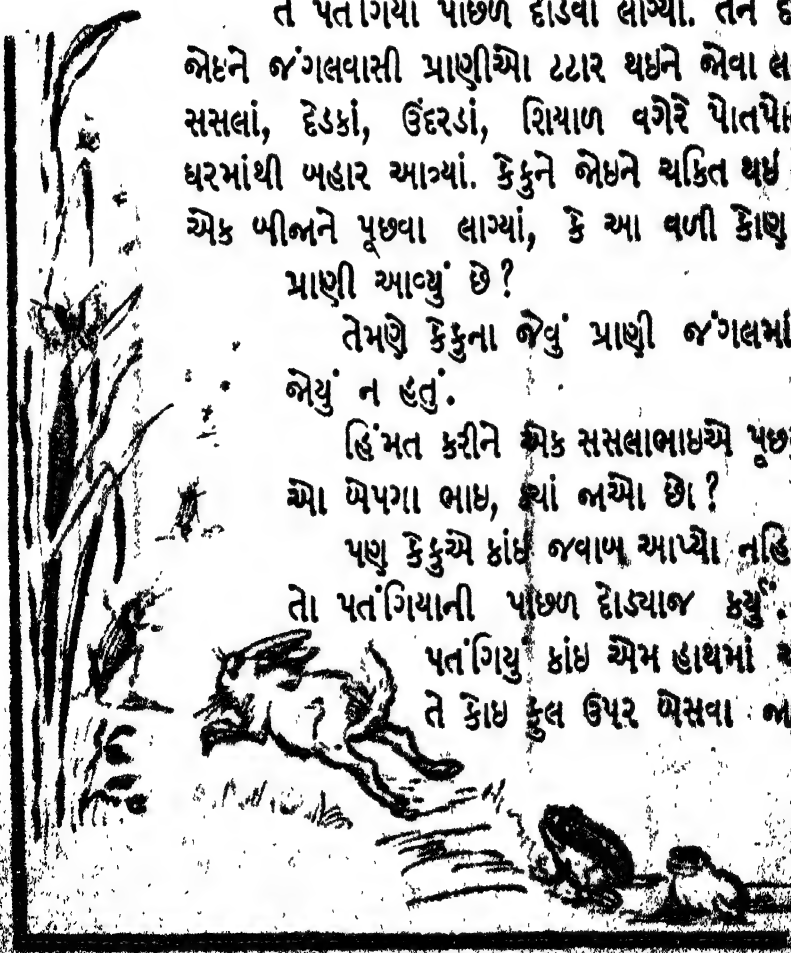 તે પતંગિયા પાછળ દોડવા લાગ્યો. તેને
જોઇને જંગલવાસી પ્રાણીઓ ટટાર થઇને જોવા
સસલાં, દેડકાં, ઉંદરડાં, શિયાળ વગેરે
ઘરમાંથી બહાર આવ્યાં. કેકુને જોઇને ચકિત થઈ
એક બીજાને પૂછવા લાગ્યાં, કે આ વળી કોણ
પ્રાણી આવ્યું છે?
તેમણે કેકુના જેવું પ્રાણી જંગલમાં
જોયું ન હતું.
હિંમત કરીને એક સસલાભાઇએ
ઓ બેપગા ભાઇ, ક્યાં જાઓ છો?
પણ કેકુએ કાંઇ જવાબ આપ્યો નહિ
તો પતંગિયાની પાછળ દોડ્યાજ કર્યું.
પતંગિયું કાંઇ એમ હાથમાં
તે કોઇ ફુલ ઉપર બેસવા